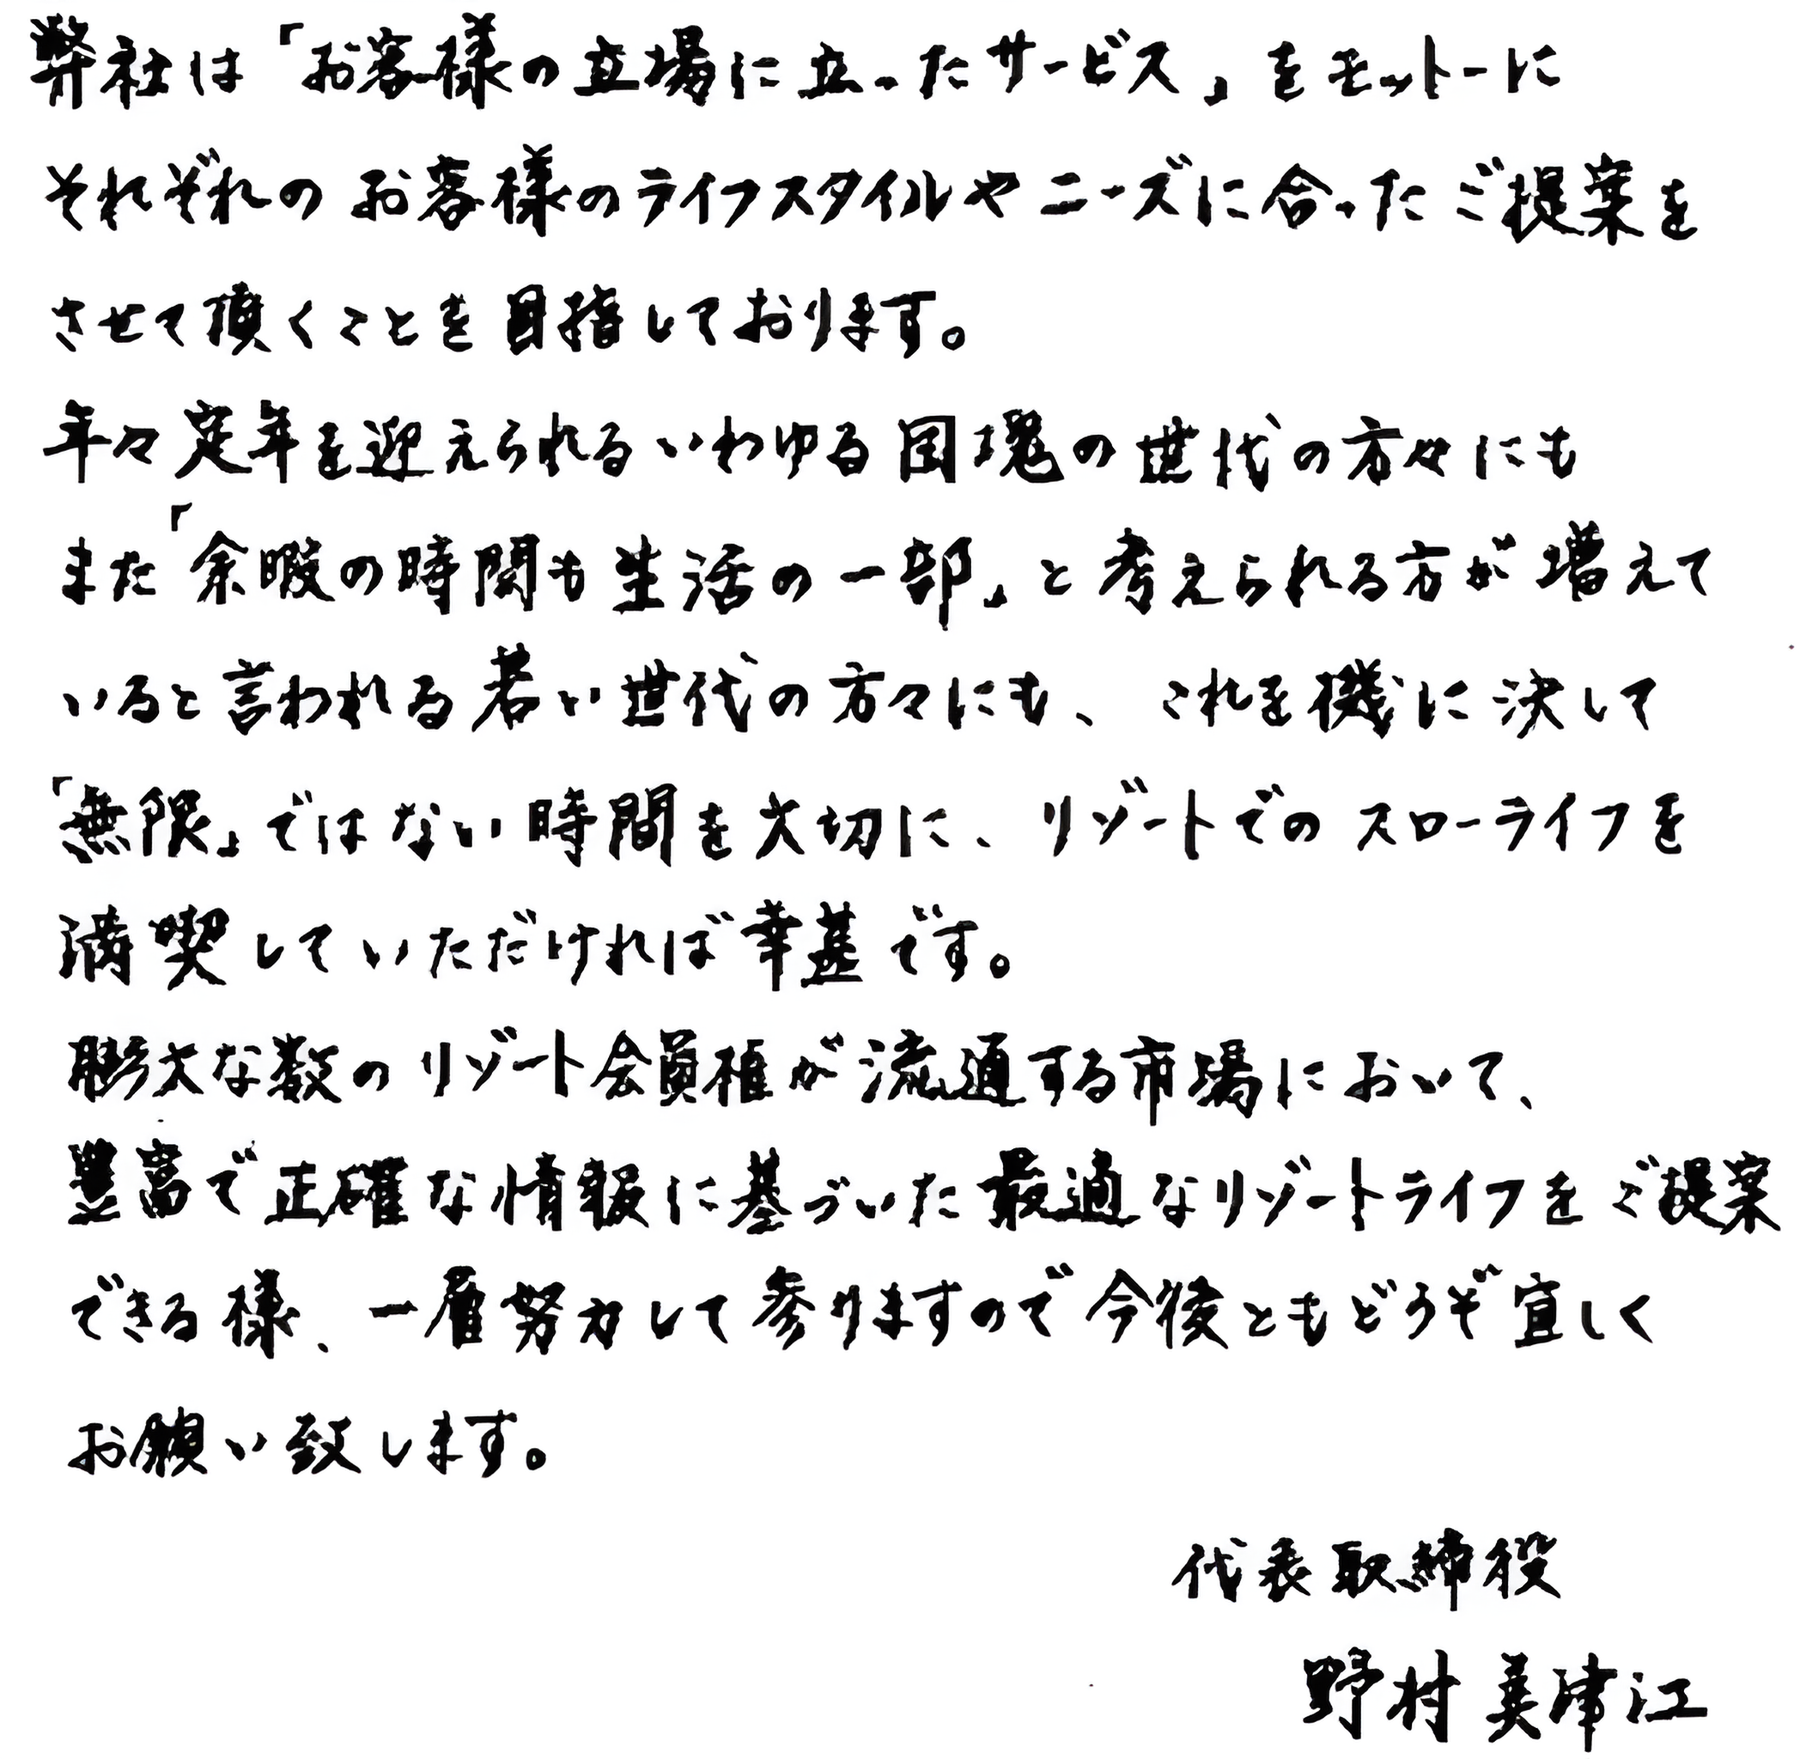 弊社は「お客様の立場に立ったサービス」をモットーに
それぞれのお客様のライフスタイルやニーズに合ったご提案を
させて頂くことを目指しております。
年々定年を迎えられるいわゆる団塊の世代の方々にも
また「余暇の時間も生活の一部」と考えられる方が増えて
いると言われる若い世代の方々にも、これを機に決して
「無限」ではない時間を大切に、リゾートでのスローライフを
満喫していただければ幸甚です。
膨大な数のリゾート会員権が流通する市場において、
豊富で正確な情報に基づいた最適なリゾートライフをご提案
できる様、一層努力して参りますので今後ともどうぞ宜しく
お願い致します。
代表取締役
野村美津江